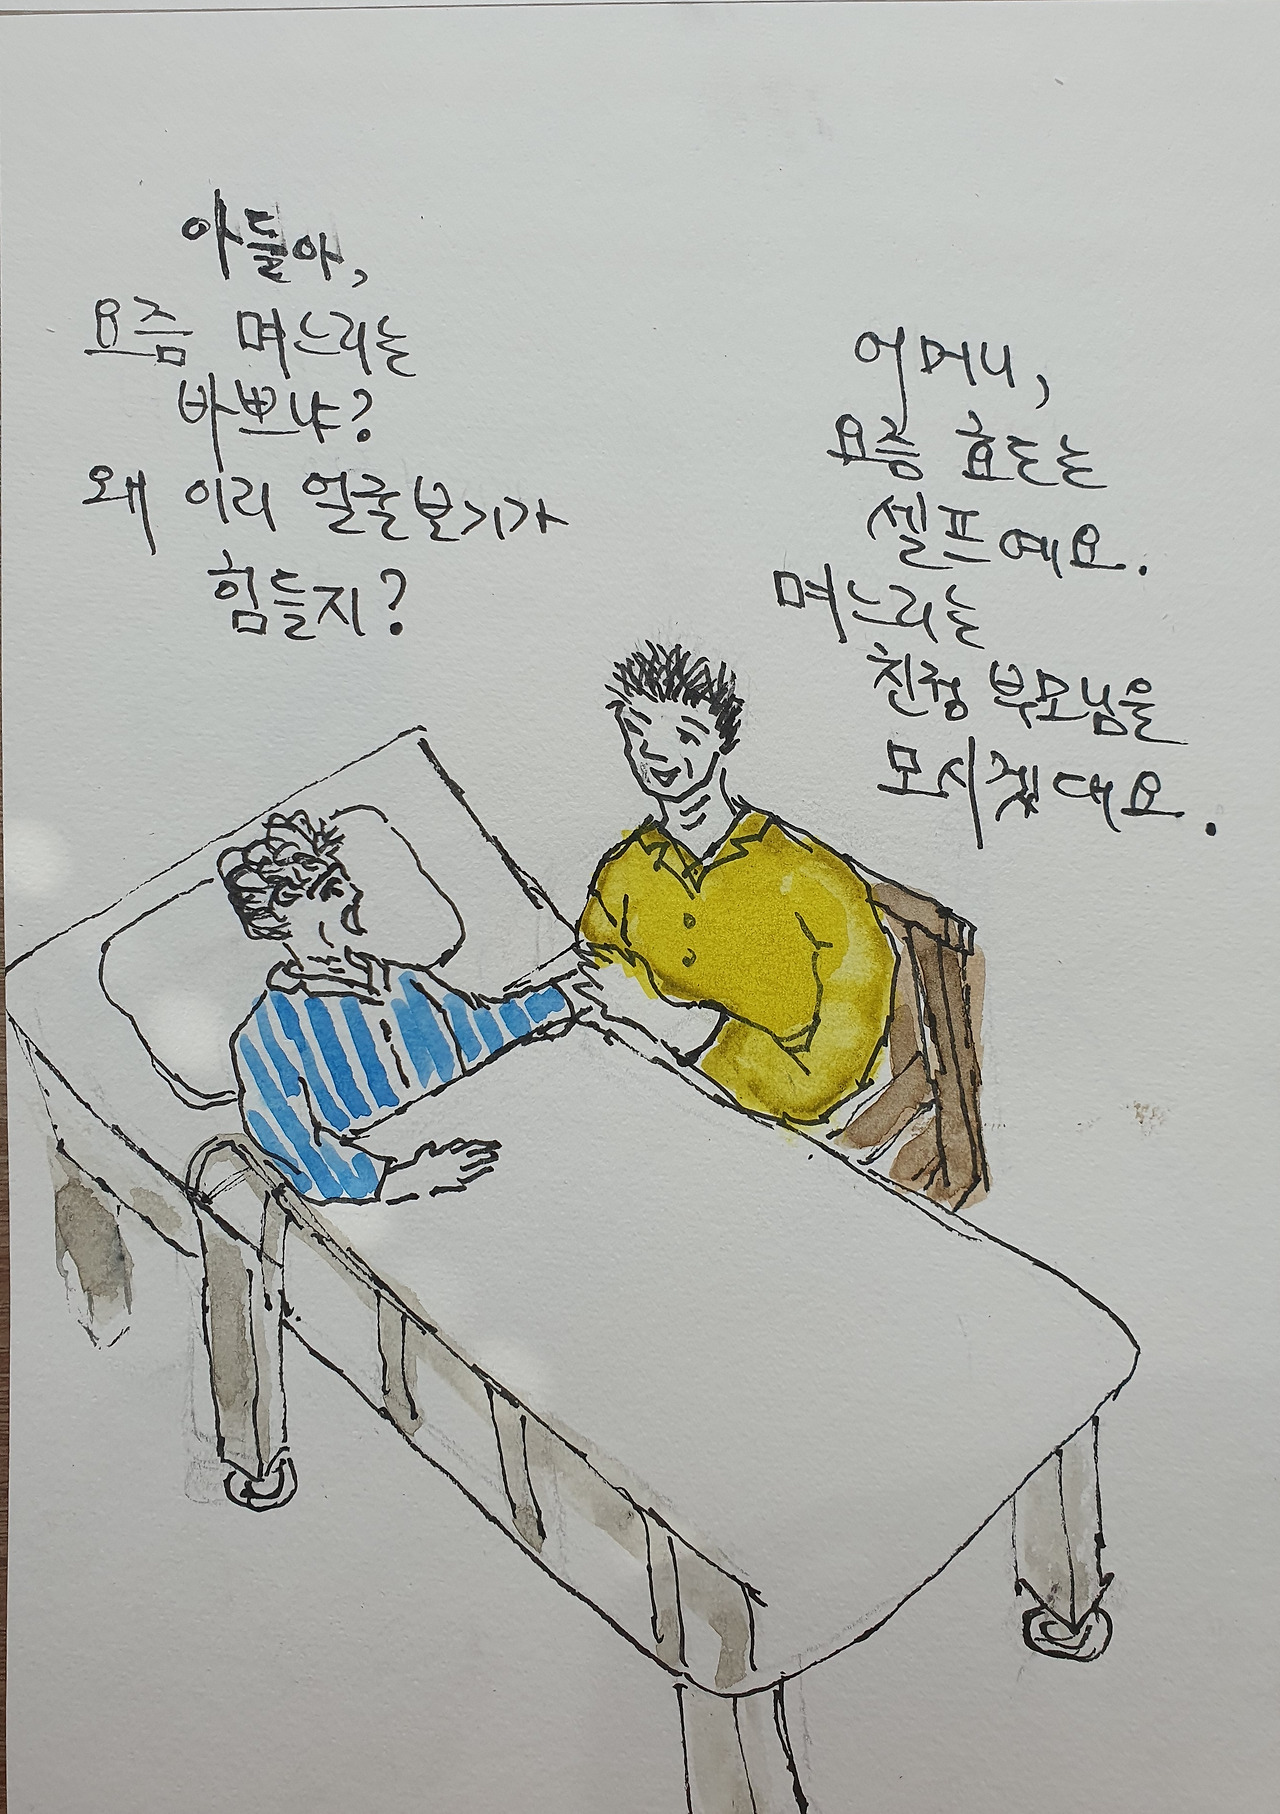 아들아,
요즘 며느리는
바쁘냐?
왜 이리 얼굴보기가
힘들지?
어머니,
요즘 효도는
셀프예요.
며느리는
친정 부모님을
모시겠대요.